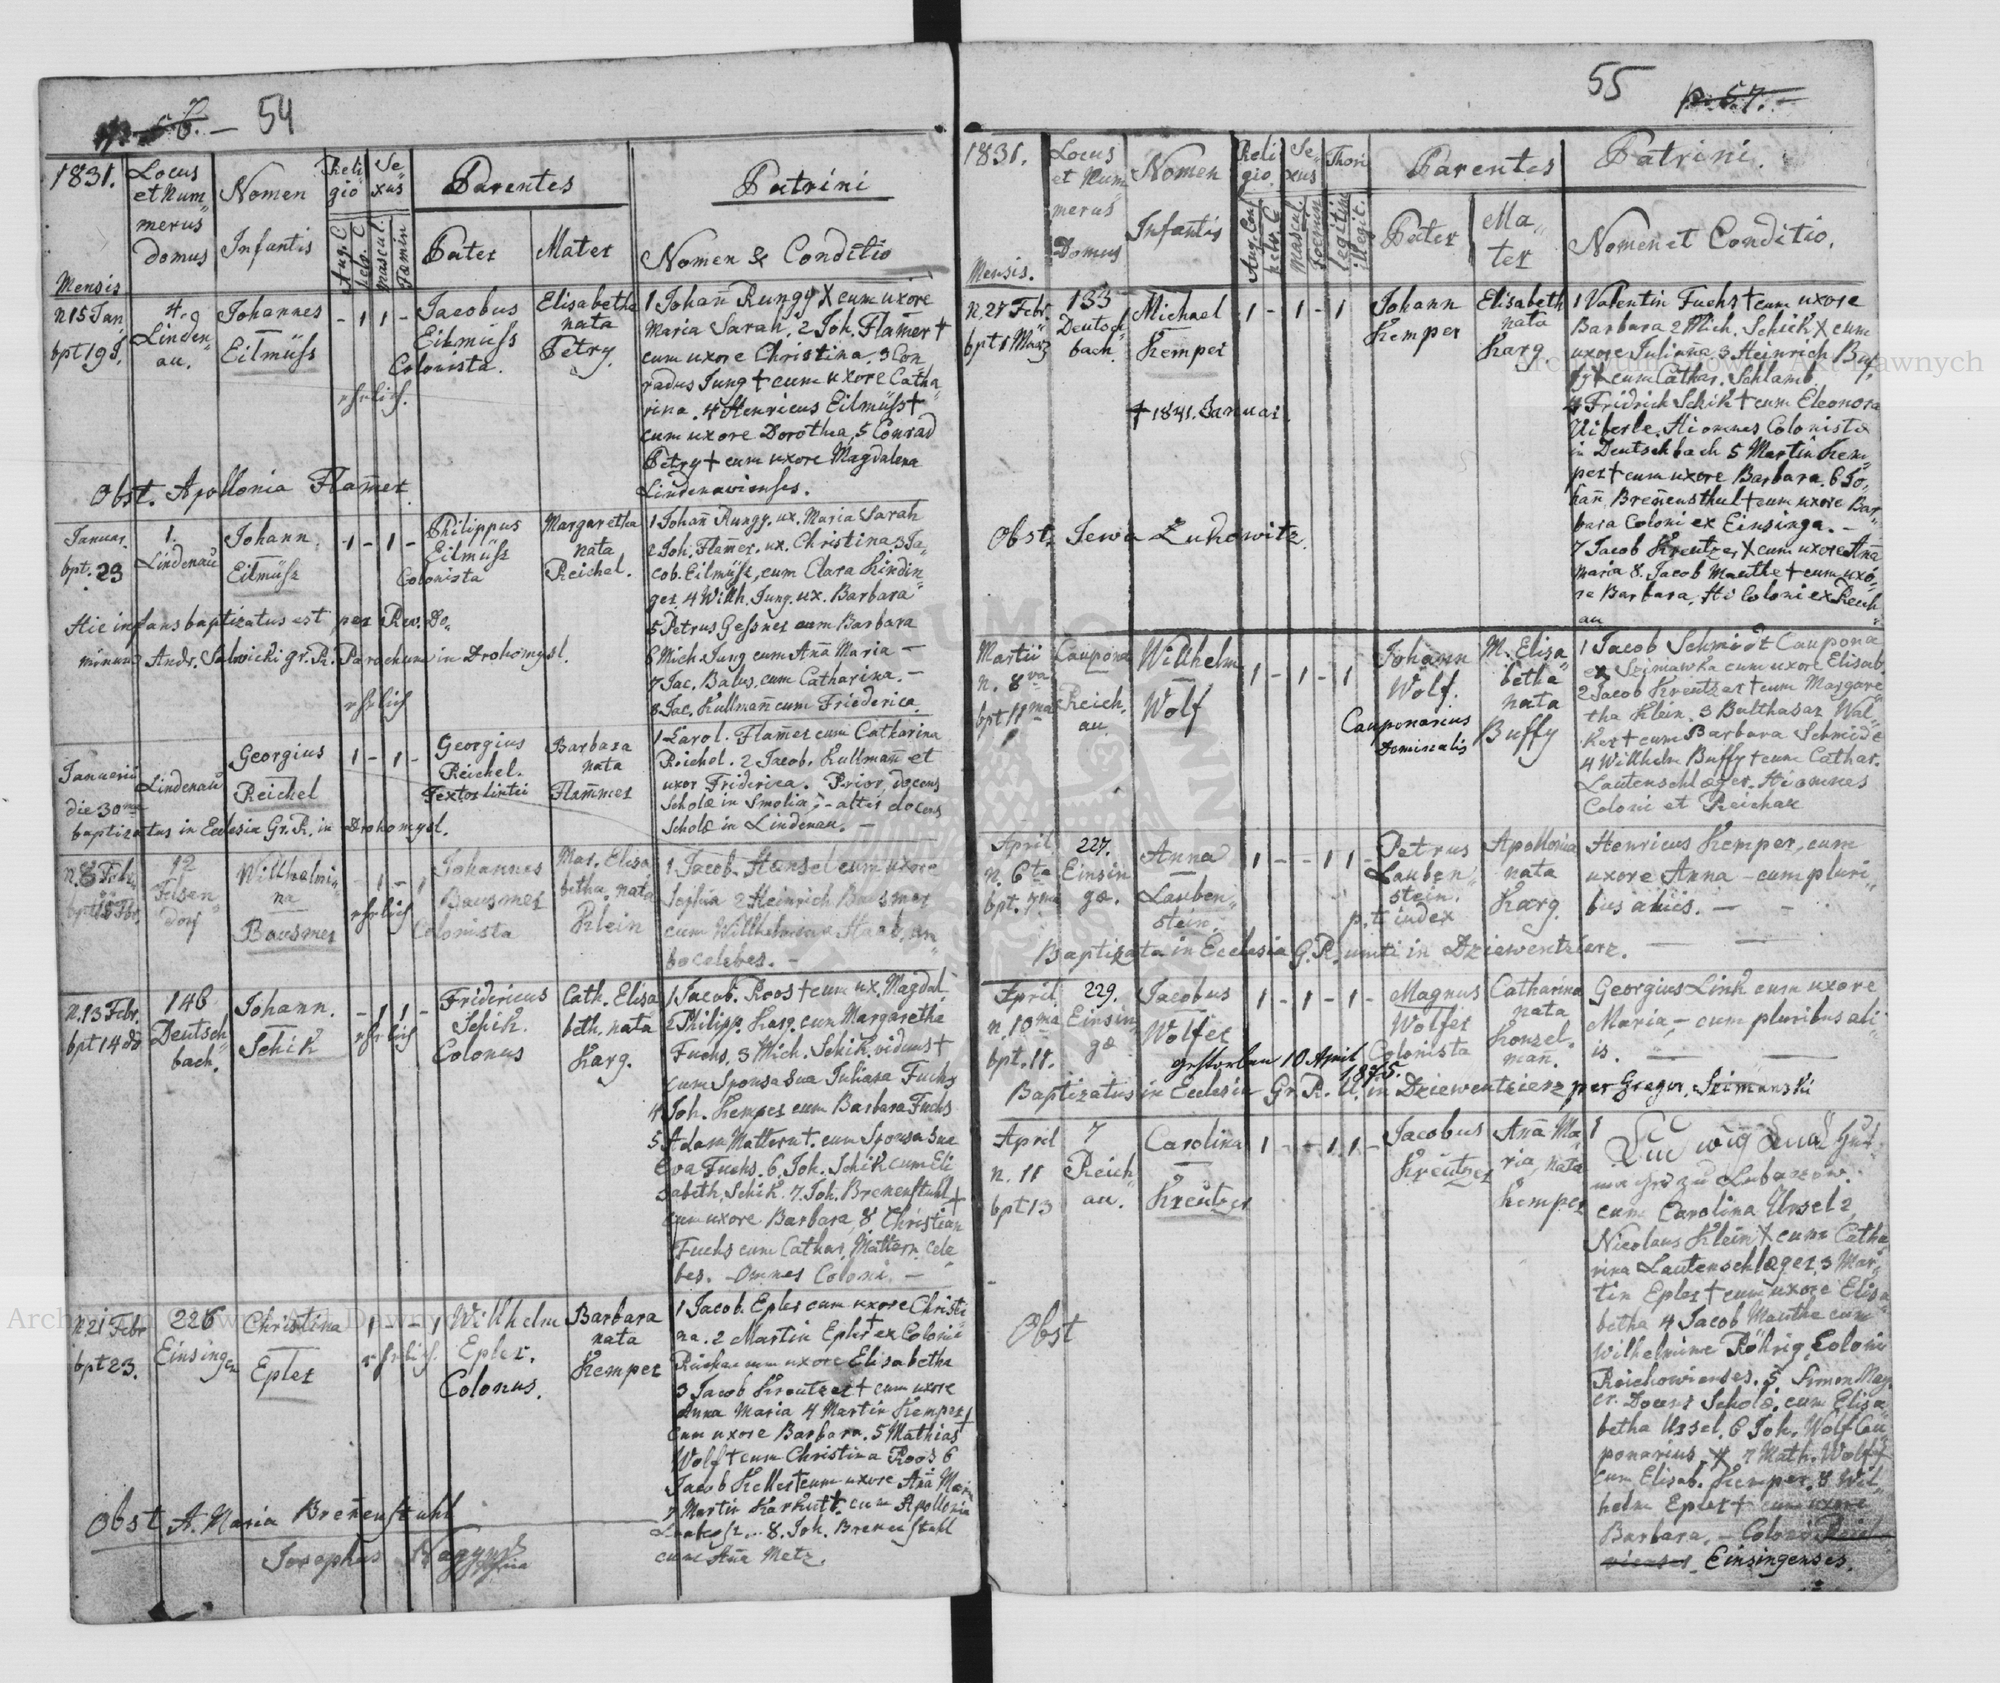 54
1831.
Locus
et Num„
merus
domus
Nomen
Infantis
Reli
gio
Se„
xus
Parentes
Patrini
Mensis
Aug. C
helv. C.
mascul.
Fœmin
Pater
Mater
Nomen & Conditio
n 15 Jan
bpt 19 J.
4.
Linden„
au.
Johannes
Eilmüss
- 1 1 -
Jacobus
Eilmüss
Colonista.
Elisabetha
nata
Petry.
ehrlich.
1 Johañ Rungy X cum uxore
Maria Sarah. 2 Joh. Flam̃er †
cum uxore Christina. 3 Con„
radus Jung † cum uxore Catha„
rina. 4 Henricus Eilmüss †
cum uxore Dorothea, 5 Conrad
Petry † cum uxore Magdalena
Lindenavienses.
Obst. Apollonia Flam̃er
Januar.
bpt. 23
1.
Lindenau
Johann.
Eilmüss
- 1 - 1 -
Philippus
Eilmüss
Colonista
Margaretha
nata
Reichel.
1 Johañ Rungy. ux. Maria Sarah
2 Joh. Flam̃er. ux. Christina 3 Ja„
cob. Eilmüss, cum Clara Kindin„
ger. 4 Wilh. Jung. ux. Barbara
5 Petrus Gessner cum Barbara
6 Mich. Jung cum Anã Maria —
7 Jac. Balus. cum Catharina. —
8 Jac. Kullmañ cum Friederica.
Hic infans baptizatus est per Rev. Do„
minum Andr. Salwicki gr. R. Parochum in Drohomysl.
ehrlich
Januarii
die 30ma
Lindenau
Georgius
Reichel
1 - 1 -
Georgius
Reichel.
Textor lintei
Barbara
nata
Flam̃mer
1 Carol. Flam̃er cum Catharina
Reichel. 2 Jacob. Kullmañ et
uxor Friderica. Prior, docens
Scholæ in Smolin, - alter docens
Scholæ in Lindenau. —
baptizatus in Ecclesia Gr. R. in Drohomysl.
n. 8 Febr.
12
Felsen„
dorf
Wilhelmi„
na
Bausmer
- 1 - 1
ehrlich
Johannes
Bausmer
Colonista
Mar. Elisa
betha nata
Klein
1 Jacob. Hensel cum uxore
Sophia 2 Heinrich Bausmer
cum Willhelmina Staab, am„
bo celebes. —
n. 13 Febr.
bpt 14 do
146
Deutsch„
bach.
Johann.
Schik
- 1 1 -
ehrlich
Fridericus
Schik.
Colonus
Cath. Elisa
beth. nata
Karg.
1 Jacob. Roos † cum ux. Magdal.
2 Philipp. Karg. cum Margaretha
Fuchs. 3 Mich. Schik. viduus †
cum Sponsa sua Juliana Fuchs
4 Joh. Kemper cum Barbara Fuchs
5 Adam Mattern †. cum Sponsa sua
Eva Fuchs. 6. Joh. Schik cum Eli
sabeth, Schik. 7. Joh. Brenenstuhl †
cum uxore Barbara, 8 Christian
Fuchs cum Cathar. Mattern. cele
bes. - Omnes Coloni. —
n 21 Febr
bpt 23.
226
Einsingen
Christina
Epler
1 - - 1
ehrlich.
Willhelm
Epler.
Colonus.
Barbara
nata
Kemper
1 Jacob. Epler cum uxore Christi„
na. 2 Martin Epler † ex Coloni
Reichau cum uxore Elisabetha
3 Jacob Kreutzer † cum uxore
Anna Maria 4 Martin Kemper †
cum uxore Barbara. 5 Mathias
Wolf † cum Christina Roos 6
Jacob Keller † cum uxore Anã Maria
7 Martin Karkut †. cum Apollonia
8. Joh. Brenenstuhl
cum Añа Metz.
Obst. A. Maria Brenẽnstuhl
Josephus
55
p. 57. —
1831.
Locus
et Num
merus
Domus
Nomen
Infantis
Reli
gio.
Se„
xus
Thori
Parentes
Patrini.
Mensis.
Aug. Con
helv. C.
mascul.
foemin
legitim
illegit.
Pater
Ma„
ter
Nomen et Conditio.
n. 27 Febr.
bpt 1 März
133
Deutsch„
bach.
Michael
Kemper
1 - 1 - 1
Johann
Kemper
Elisabeth
nata
Karg
† 1831. Januar.
1 Valentin Fuchs † cum uxore
Barbara 2 Mich. Schik X cum
uxore Juliaña 3 Heinrich Buf„
fy † cum Cathar. Schlamb.
4 Fridrich Schik † cum Eleonora
Uiberle. Hi omnes Colonistæ
in Deutschbach 5 Martin Kem„
per † cum uxore Barbara. 6 Jo„
hañ Breñensthul † cum uxore Bar„
bara Coloni ex Einsinga. —
7 Jacob Kreutzer X cum uxore Aña
Maria 8. Jacob Mauthe † cum uxo„
re Barbara, Hi Coloni ex Reich„
au
Obst. Jewa Lukowitz
Martii
n. 8va
bpt 11ma
Caupona
Reich„
au
Willhelm
Wolf
1 - 1 - 1
Johann
Wolf.
Cauponarius
Dominalis
M. Elisa„
betha
nata
Buffy
1 Jacob Schmidt Caupona
ex Szimawka cum uxore Elisab.
2 Jacob Kreutzer † cum Margare„
tha Klein. 3 Balthasar Wal„
ker † cum Barbara Schmidt
4 Willhelm Buffy † cum Cathar.
Lautenschlæger. Hi omnes
Coloni et Reichau
April
n. 6ta
bpt. 7ma
227.
Einsin
gæ.
Anna
Lauben„
stein.
1 - - 1 1 -
Petrus
Lauben„
stein.
p. t. iudex
Apollonia
nata
Karg.
Henricus Kemper, cum
uxore Anna - cum pluri„
bus aliis. —
Baptizata in Ecclesia G. R. uniti in Dziewentzierz.
April
n. 10ma
bpt. 11.
229.
Einsin„
gæ
Jacobus
Wolfer
1 - 1 - 1 -
Magnus
Wolfer
Colonista
Catharina
nata
Konsel„
mañ.
Georgius Link cum uxore
Maria, - cum pluribus ali„
is. —
gestorben 10 April
1895.
Baptizatus in Ecclesia Gr. R. U. in Dziewentzierz per Gregor. Szimanski
April
n. 11
bpt 13
7
Reich„
au.
Carolina
Kreutzer
1 - - 1 1 -
Jacobus
Kreutzer
Aña Ma„
ria, nata
Kemper
1
cum Carolina Ursel 2,
Nicolaus Klein X cum Catha„
rina Lautenschlæger, 3 Mar„
tin Epler † cum uxore Elisa„
betha 4 Jacob Mauthe cum
Wilhelmine Röhrig, Coloni
Reichowienses. 5 Simon May„
er. Docens Scholæ. cum Elisa„
betha Ursel. 6 Joh. Wolf Cau„
ponarius. X 7 Math. Wolf X
cum Elisab. Kemper. 8 Wil„
helm Epler † cum uxore
Barbara, - Coloni
Einsingenses.
Obst